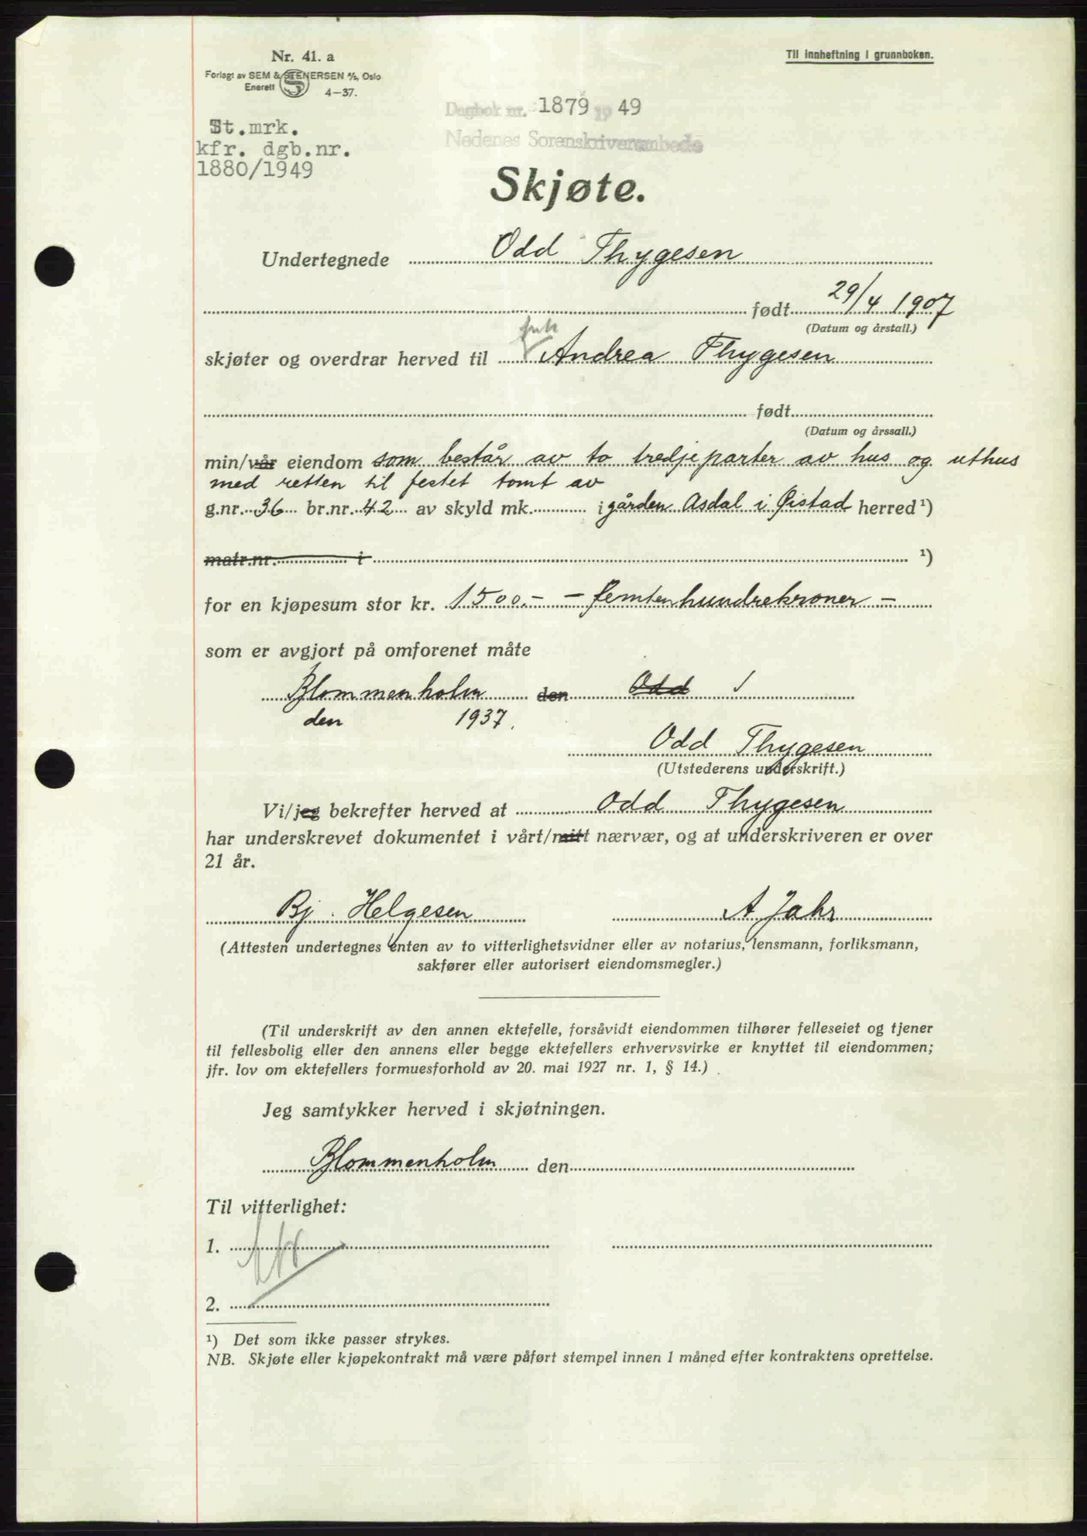 Nr. 41. a
Forlagt av SEM & STENERSEN A/S, Oslo
Enerett 4-37.
Til innheftning i grunnboken.
Dagbok nr. 1879 1949
Nedenes Sorenskriverembede
St.mrk.
kfr. dgb.nr.
1880/1949
Skjøte.
Undertegnede Odd Thygesen
født 29/4 1907
(Datum og årstall.)
skjøter og overdrar herved til Andrea Thygesen
født
(Datum og årssall.)
min/vår eiendom som består av to tredjeparter av hus og uthus
med retten til festet tomt av
g.nr. 36 br.nr. 42 av skyld mk. i gården Asdal i Øistad herred ¹)
matr.nr. i ¹)
for en kjøpesum stor kr. 1500.- - femtenhundrekroner -
som er avgjort på omforenet måte
Blommenholm den Odd
den 1937.
Odd Thygesen
(Utstederens underskrift.)
Vi/jeg bekrefter herved at Odd Thygesen
har underskrevet dokumentet i vårt/mitt nærvær, og at underskriveren er over
21 år.
Bj. Helgesen A Jahr
(Attesten undertegnes enten av to vitterlighetsvidner eller av notarius, lensmann, forliksmann,
sakfører eller autorisert eiendomsmegler.)
(Til underskrift av den annen ektefelle, forsåvidt eiendommen tilhører felleseiet og tjener
til fellesbolig eller den annens eller begge ektefellers erhvervsvirke er knyttet til eiendommen;
jfr. lov om ektefellers formuesforhold av 20. mai 1927 nr. 1, § 14.)
Jeg samtykker herved i skjøtningen.
Blommenholm den
Til vitterlighet:
1.
2.
¹) Det som ikke passer strykes.
NB. Skjøte eller kjøpekontrakt må være påført stempel innen 1 måned efter kontraktens oprettelse.